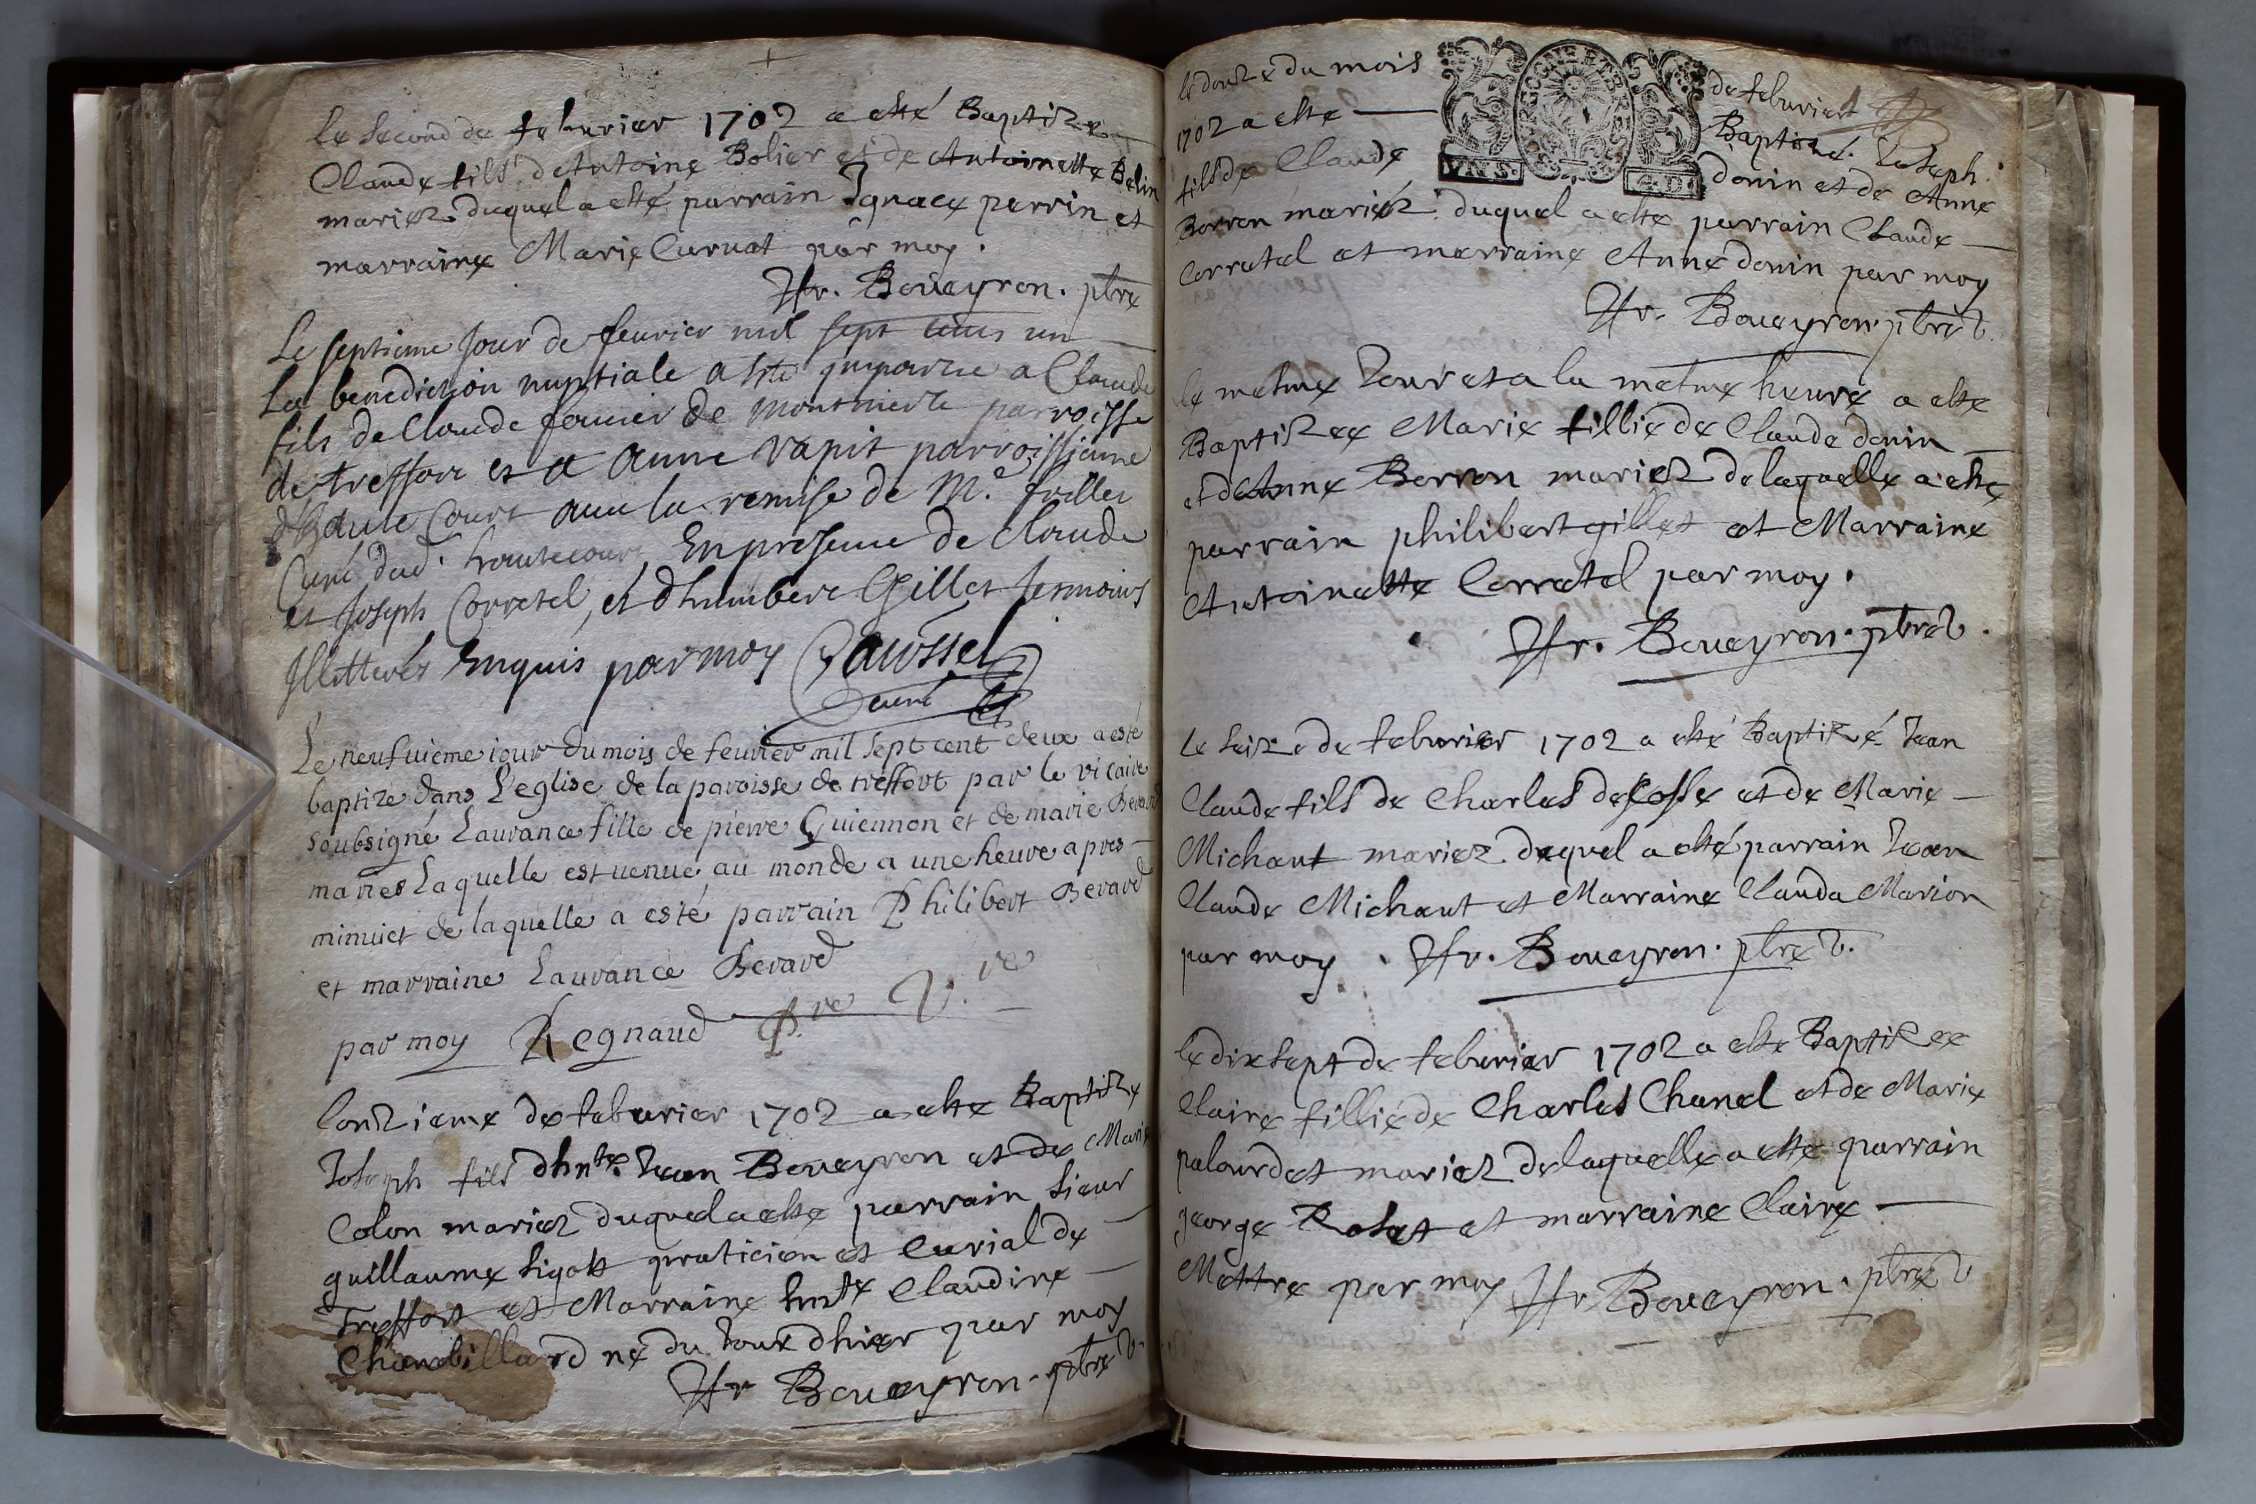 Le second de feburier 1702 a esté Baptize
Claude fils d'Antoine Bolier et de Antoinette Belin
mariez duquel a esté parrain Ignace perrin et
marraine Marie Curvat par moy.
Fr. Boueyron. ptre
Le septieme Jour de feurier mil sept cens un
La benediction nuptiale a este impartie a Claude
fils de Claude fournier de Montmerle parroisse
de treffort et a Anne Vapit parroissienne
d'haute Court avec la remise de Mre
Curé dud. hautecourt, En presence de Claude
et Joseph Corretel, et d'humbert Gillet tesmoins
Illitterés Enquis par moy Gaussel
curé
Le neufvieme iour du mois de feurier mil sept cent deux a esté
baptize dans L'eglise de la paroisse de treffort par le vicaire
soubsigné Laurance fille de pierre Guiennon et de marie Berard
maries Laquelle est uenue au monde a une heure apres
minuict de laquelle a esté parrain Philibert Berard
et marraine Laurance Berard
par moy Regnaud P.re V.re
Lonzieme de feburier 1702 a este Baptize
Joseph fils dhnble. Jean Boueyron et de Marie
Colon mariez duquel a este parrain sieur
guillaume sigott praticien et Curial de
Treffort et Marraine hnste Claudine
Chambillard né du Jour dhier par moy
Fr Boueyron. ptre V.
le douze du mois de feburier
1702 a este Baptizé. Joseph
fils de Claude donin et de Anne
Borron mariéz duquel a este parrain Claude
Corretel et marraine Anne donin par moy
Fr. Boueyron. ptre V.
le mesme Jour et a la mesme heure a este
Baptizee Marie fillie de Claude donin
et de Anne Borron mariez de laquelle a este
parrain philibert gillet et Marraine
Antoinette Corretel par moy.
Fr. Boueyron. ptre V.
Le seize de feburier 1702 a esté Baptizé Jean
Claude fils de Charles decosse et de Marie
Michaut mariez duquel a esté parrain Jean
Claude Michaut et Marraine Clauda Marion
par moy. Fr. Boueyron. ptre V.
Le dix sept de feburier 1702 a este Baptizee
Claire fillie de Charles Chanel et de Marie
palourdet mariez de laquelle a este parrain
george Roset et marraine Claire
Mettre par moy Fr Boueyron. ptre V